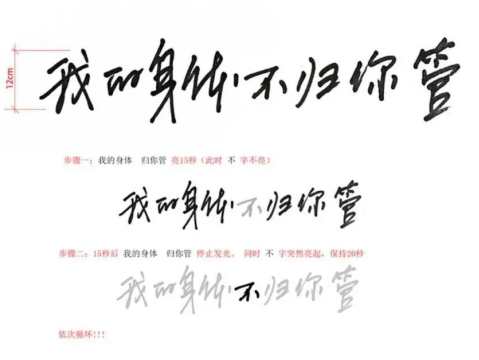 我的身体不归你管
12cm
步骤一：我的身体 归你管 亮15秒（此时 不 字不亮）
我的身体不归你管
步骤二：15秒后 我的身体 归你管 停止发光， 同时 不 字突然亮起，保持20秒
我的身体不归你管
依次循环!!!